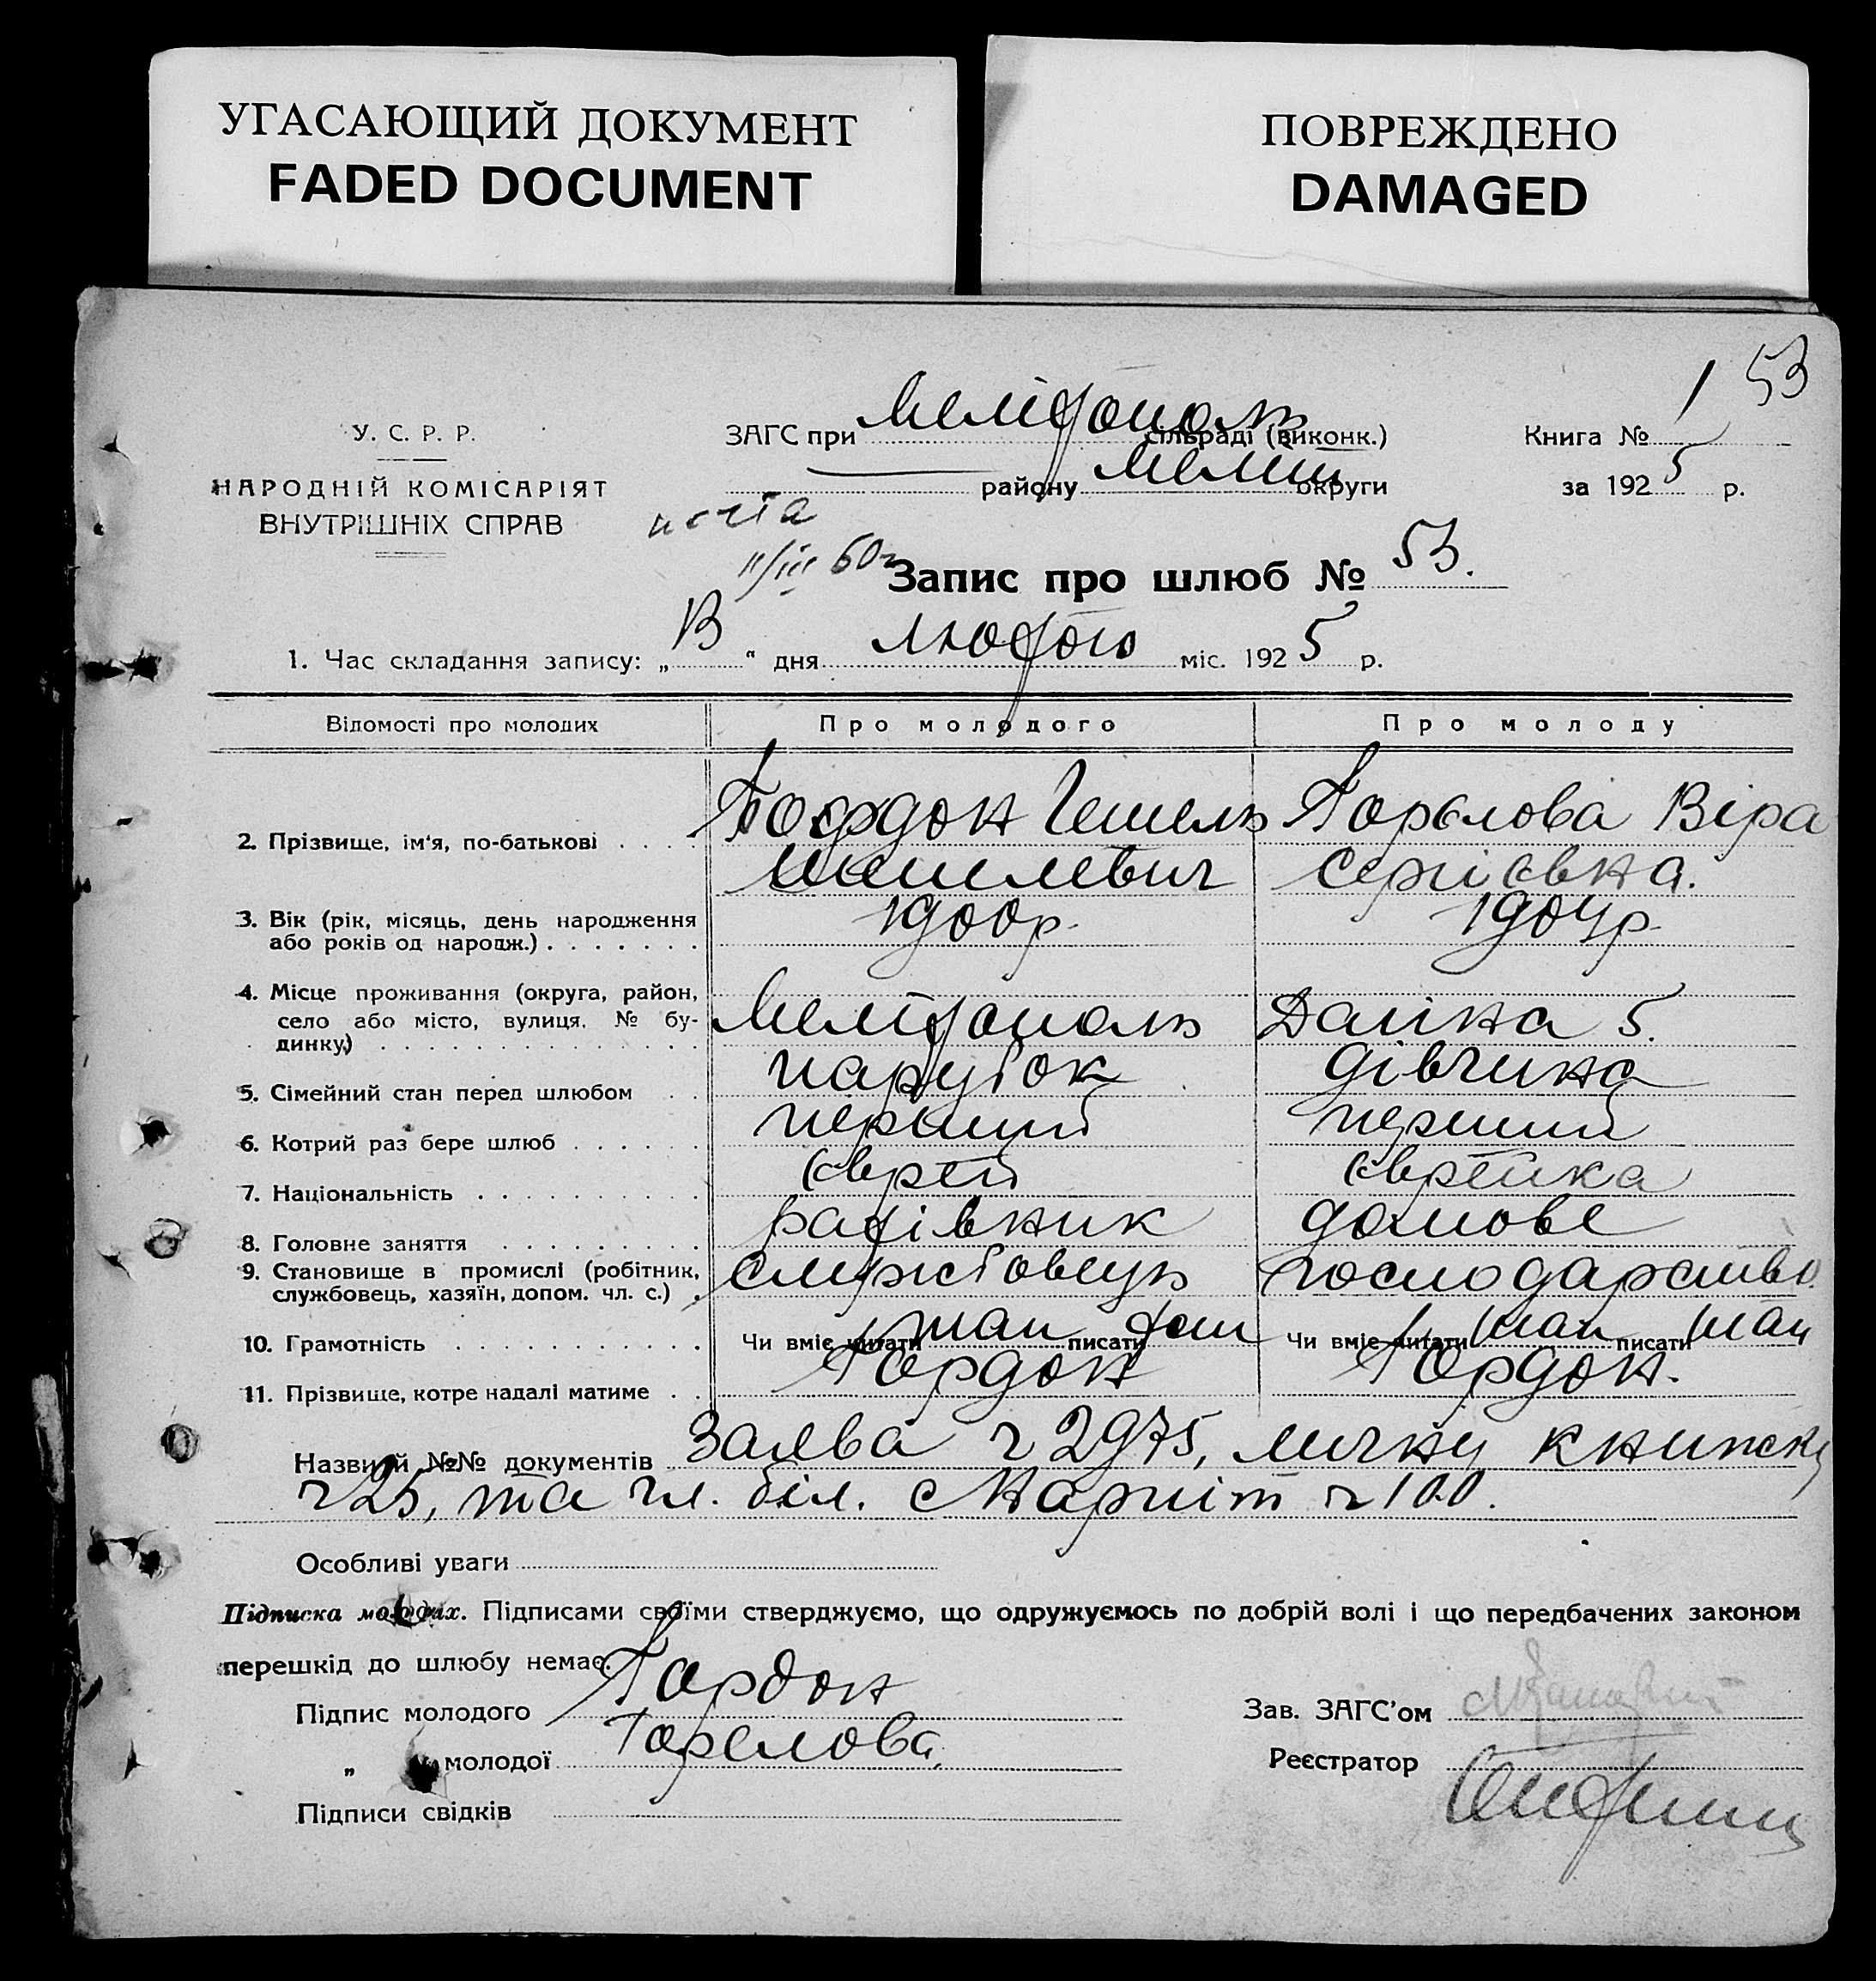 УГАСАЮЩИЙ ДОКУМЕНТ
FADED DOCUMENT
ПОВРЕЖДЕНО
DAMAGED
53
У. С. Р. Р.
НАРОДНІЙ КОМІСАРІЯТ
ВНУТРІШНІХ СПРАВ
ЗАГС при Мелітополь сільраді (виконк.)
району Меліт округи
Книга № 1
за 1925 р.
11/III 60г
Запис про шлюб № 53.
1. Час складання запису: „13“ дня лютого міс. 1925 р.
Відомості про молодих Про молодого Про молоду
2. Прізвище, ім'я, по-батькові . . . . Гордон Гешель Горєлова Віра
Сергієвна.
3. Вік (рік, місяць, день народження 1900р. 1904р.
або років од народж.) . . . . . . .
4. Місце проживання (округа, район,
село або місто, вулиця, № бу- Мелітополь 5.
динку) . . . . . . . . . . . . . .
5. Сімейний стан перед шлюбом . . парубок дівчина
6. Котрий раз бере шлюб . . . . . . перший перший
7. Національність . . . . . . . . . . єврей єврейка
8. Головне заняття . . . . . . . . . домове
9. Становище в промислі (робітник, службовець господарство.
службовець, хазяїн, допом. чл. с.) .
10. Грамотність . . . . . . . . . . . Чи вміє читати так писати так Чи вміє читати так писати так
11. Прізвище, котре надалі матиме . . Гордон Гордон.
Назви й №№ документів Заява ч 2975, лична книжка
ч 25, та чл. біл. Нарпіт ч 100.
Особливі уваги
Підписка молодих. Підписами своїми стверджуємо, що одружуємось по добрій волі і що передбачених законом
перешкід до шлюбу немає.
Підпис молодого Гордон
„ молодої Горелова
Підписи свідків
Зав. ЗАГС'ом
Реєстратор